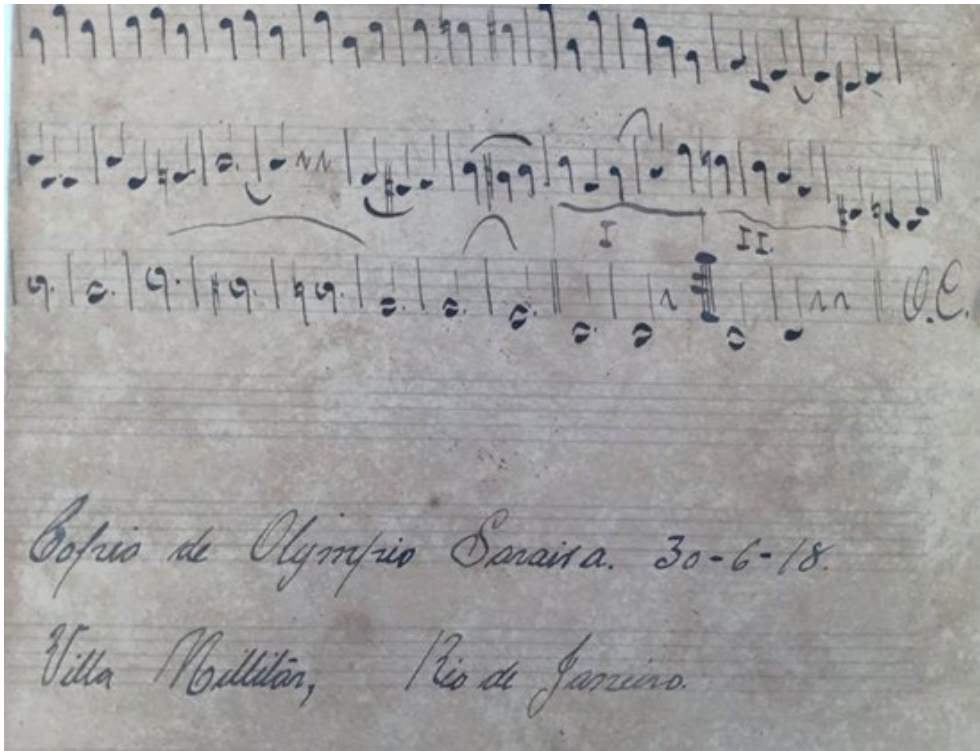 I
II.
D.C.
Copia de Olympio Saraiva. 30-6-18.
Villa Millitar, Rio de Janeiro.